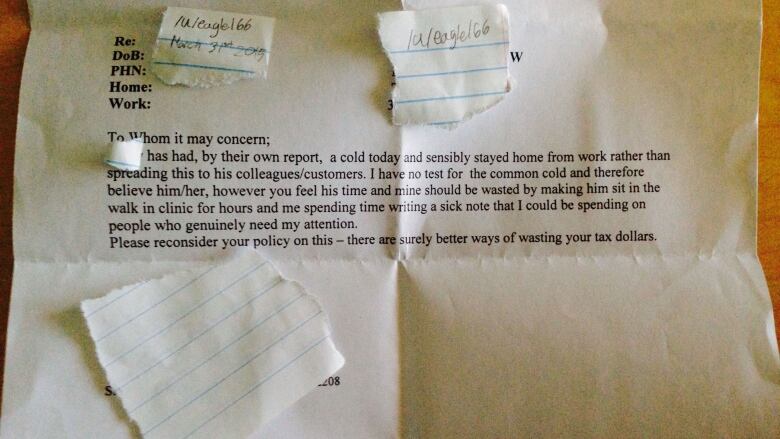 /u/eagle166
/u/eagle166
Re: March 31st 2015
DoB: W
PHN:
Home:
Work: 3
To Whom it may concern;
has had, by their own report, a cold today and sensibly stayed home from work rather than
spreading this to his colleagues/customers. I have no test for the common cold and therefore
believe him/her, however you feel his time and mine should be wasted by making him sit in the
walk in clinic for hours and me spending time writing a sick note that I could be spending on
people who genuinely need my attention.
Please reconsider your policy on this – there are surely better ways of wasting your tax dollars.
S. 208